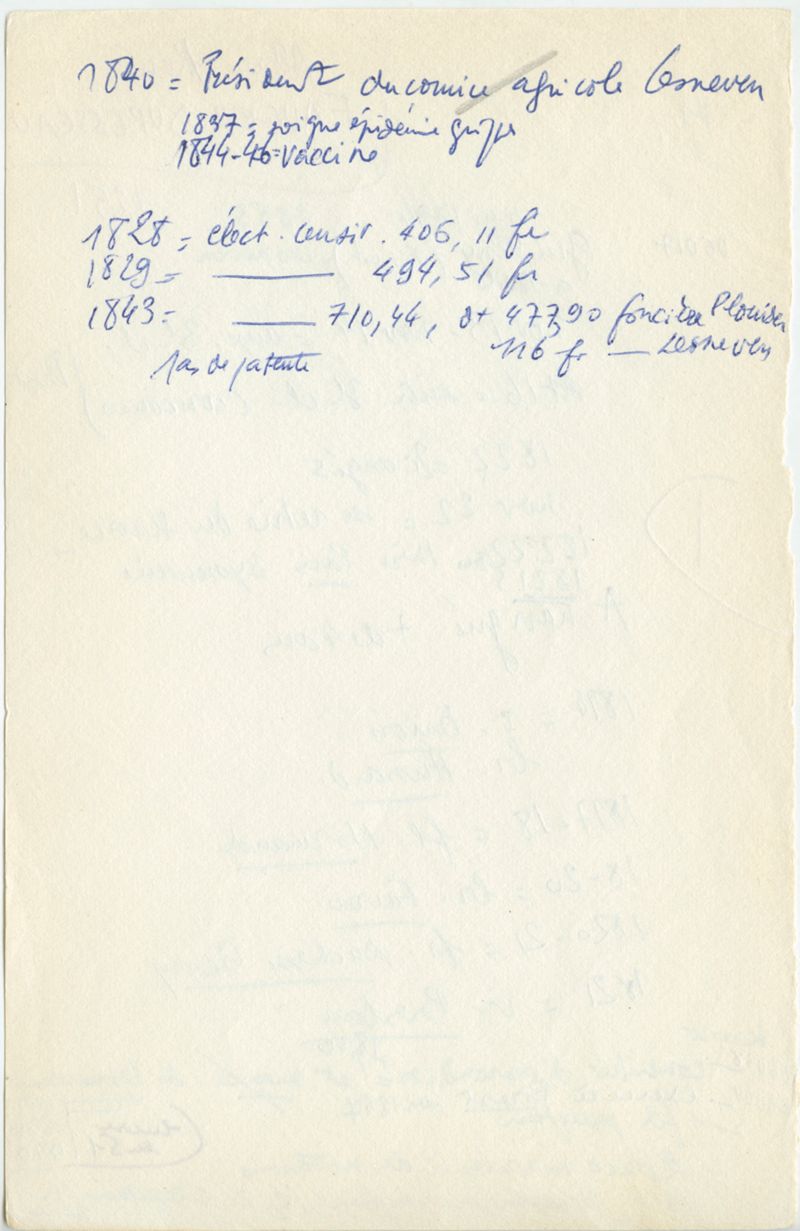 1840 = Président du comice agricole Lesneven
1837 = soigne épidémie grippe
1844-46 = vaccine
1828 = élect. censit. 406, 11 fr
1829 = —— 494, 51 fr
1843 = —— 710,44, dt 477,90 foncière Plouider
116 fr — Lesneven
pas de patente